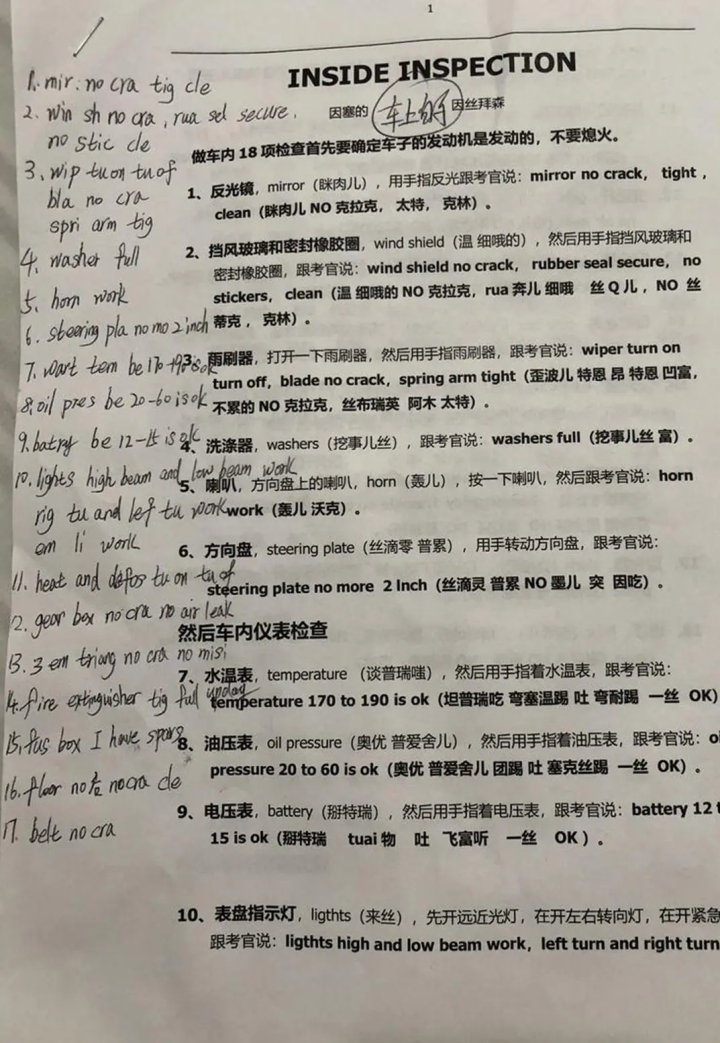 1
INSIDE INSPECTION
因塞的 车上的 因丝拜森
做车内 18 项检查首先要确定车子的发动机是发动的，不要熄火。
1、反光镜，mirror（眯肉儿），用手指反光跟考官说：mirror no crack， tight ，
clean（眯肉儿 NO 克拉克， 太特， 克林）。
2、挡风玻璃和密封橡胶圈，wind shield（温 细哦的），然后用手指挡风玻璃和
密封橡胶圈，跟考官说：wind shield no crack， rubber seal secure， no
stickers， clean（温 细哦的 NO 克拉克，rua 奔儿 细哦 丝 Q 儿 ，NO 丝
蒂克 ， 克林）。
3、雨刷器，打开一下雨刷器，然后用手指雨刷器，跟考官说：wiper turn on
turn off，blade no crack，spring arm tight（歪波儿 特恩 昂 特恩 凹富，
不累的 NO 克拉克，丝布瑞英 阿木 太特）。
4、洗涤器，washers（挖事儿丝），跟考官说：washers full（挖事儿丝 富）。
5、喇叭，方向盘上的喇叭，horn（轰儿），按一下喇叭，然后跟考官说：horn
work（轰儿 沃克）。
6、方向盘，steering plate（丝滴零 普累），用手转动方向盘，跟考官说：
steering plate no more 2 Inch（丝滴灵 普累 NO 墨儿 突 因吃）。
然后车内仪表检查
7、水温表，temperature （谈普瑞嗤），然后用手指着水温表，跟考官说：
temperature 170 to 190 is ok（坦普瑞吃 弯塞温踢 吐 弯耐踢 一丝 OK）
8、油压表，oil pressure（奥优 普爱舍儿），然后用手指着油压表，跟考官说：oi
pressure 20 to 60 is ok（奥优 普爱舍儿 团踢 吐 塞克丝踢 一丝 OK）。
9、电压表，battery（掰特瑞），然后用手指着电压表，跟考官说：battery 12 t
15 is ok（掰特瑞 tuai 物 吐 飞富听 一丝 OK ）。
10、表盘指示灯，ligthts（来丝），先开远近光灯，在开左右转向灯，在开紧急
跟考官说：ligthts high and low beam work，left turn and right turn
1. mir: no cra tig cle
2. win sh no cra, rua sel secure,
no stic cle
3、wip tu on tu of
bla no cra
spri arm tig
4. washer full
5. horn work
6. steering pla no mo 2 inch
7. wart tem be 170 +90 is ok
8. oil pres be 20-60 is ok
9. batry be 12-15 is ok
10. lights high beam and low beam work
rig tu and lef tu work
em li work
11. heat and defos tu on tu of
12. gear box no cra no air leak
13. 3 em triang no cra no misi
14. fire extinguisher tig full
15. fus box I have spars
16. floor no 危 no cra cle
17. belt no cra